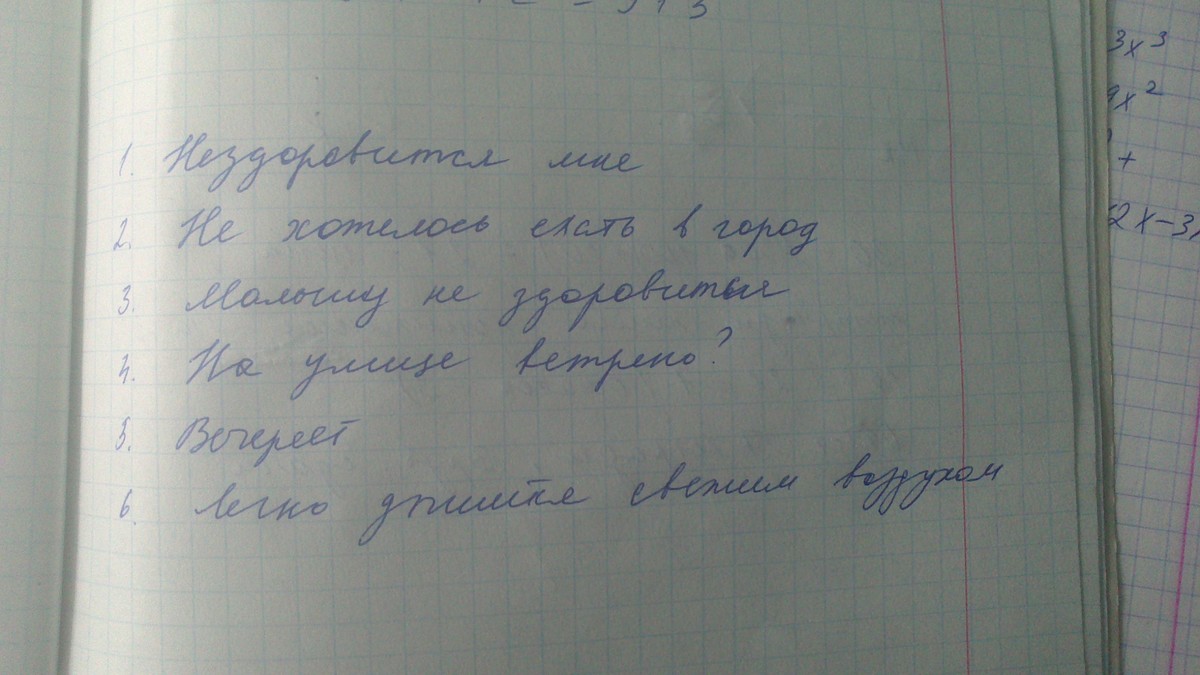 1. Нездоровится мне
2. Не хотелось ехать в город
3. Малышу не здоровится
4. На улице ветрено?
5. Вечереет
6. Легко дышится свежим воздухом
3x³
9x²
+
2x-3